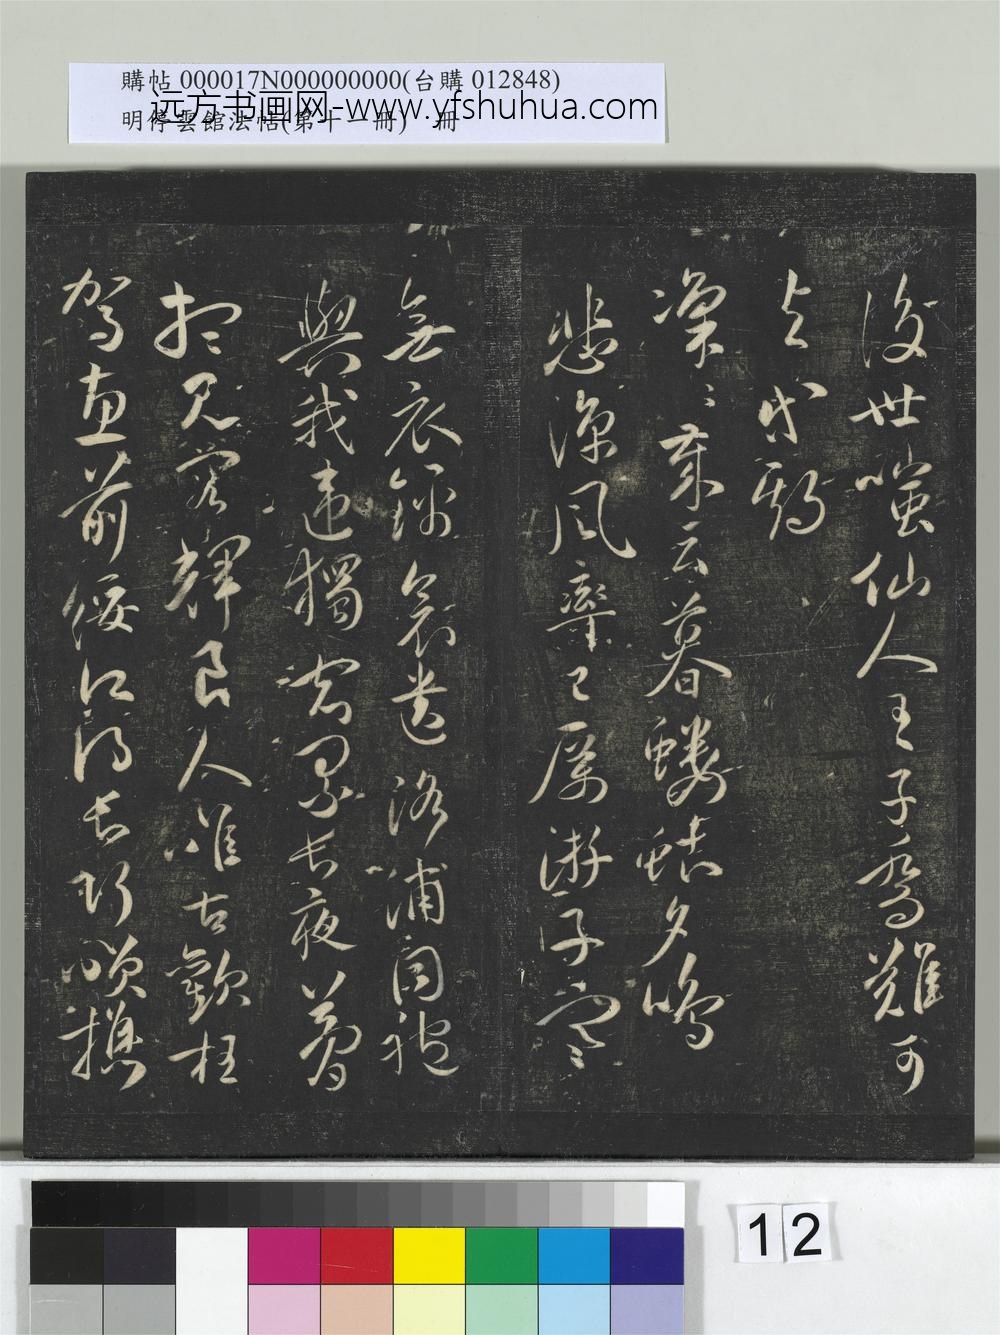 購帖 000017N000000000(台購 012848)
远方书画网-www.yfshuhua.com
明停雲館法帖(第十一冊) 冊
後世嗤仙人王子喬難可
与等期
凜〻歲云暮螻蛄夕鳴
悲涼風率已厲游子寒
無衣錦衾遺洛浦同袍
與我違獨宿累長夜夢
想見容輝良人惟古歡枉
駕惠前綏願得長巧笑攜
12